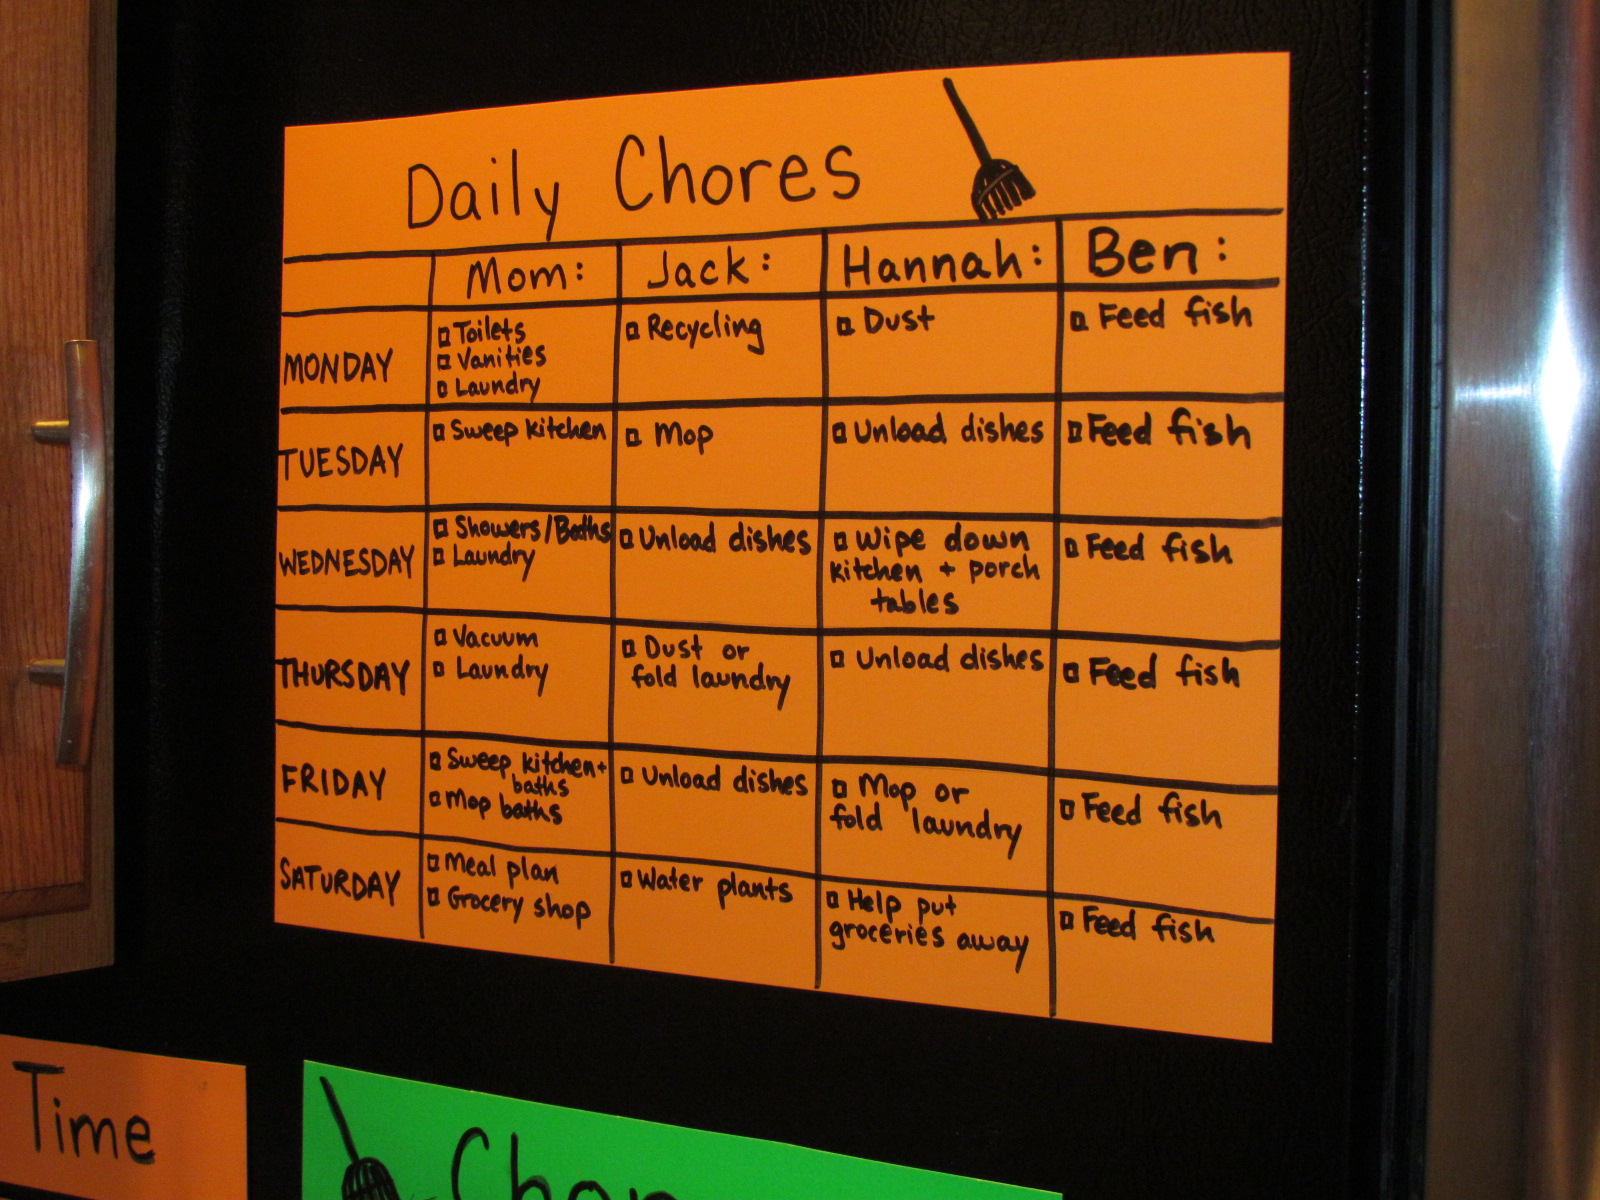 Daily Chores
Mom: Jack: Hannah: Ben:
MONDAY
Toilets
Vanities
Laundry
Recycling
Dust
Feed fish
TUESDAY
Sweep kitchen
Mop
Unload dishes
Feed fish
WEDNESDAY
Showers/Baths
Laundry
Unload dishes
Wipe down
kitchen + porch
tables
Feed fish
THURSDAY
Vacuum
Laundry
Dust or
fold laundry
Unload dishes
Feed fish
FRIDAY
Sweep kitchen+
baths
Mop baths
Unload dishes
Mop or
fold laundry
Feed fish
SATURDAY
Meal plan
Grocery shop
Water plants
Help put
groceries away
Feed fish
Time